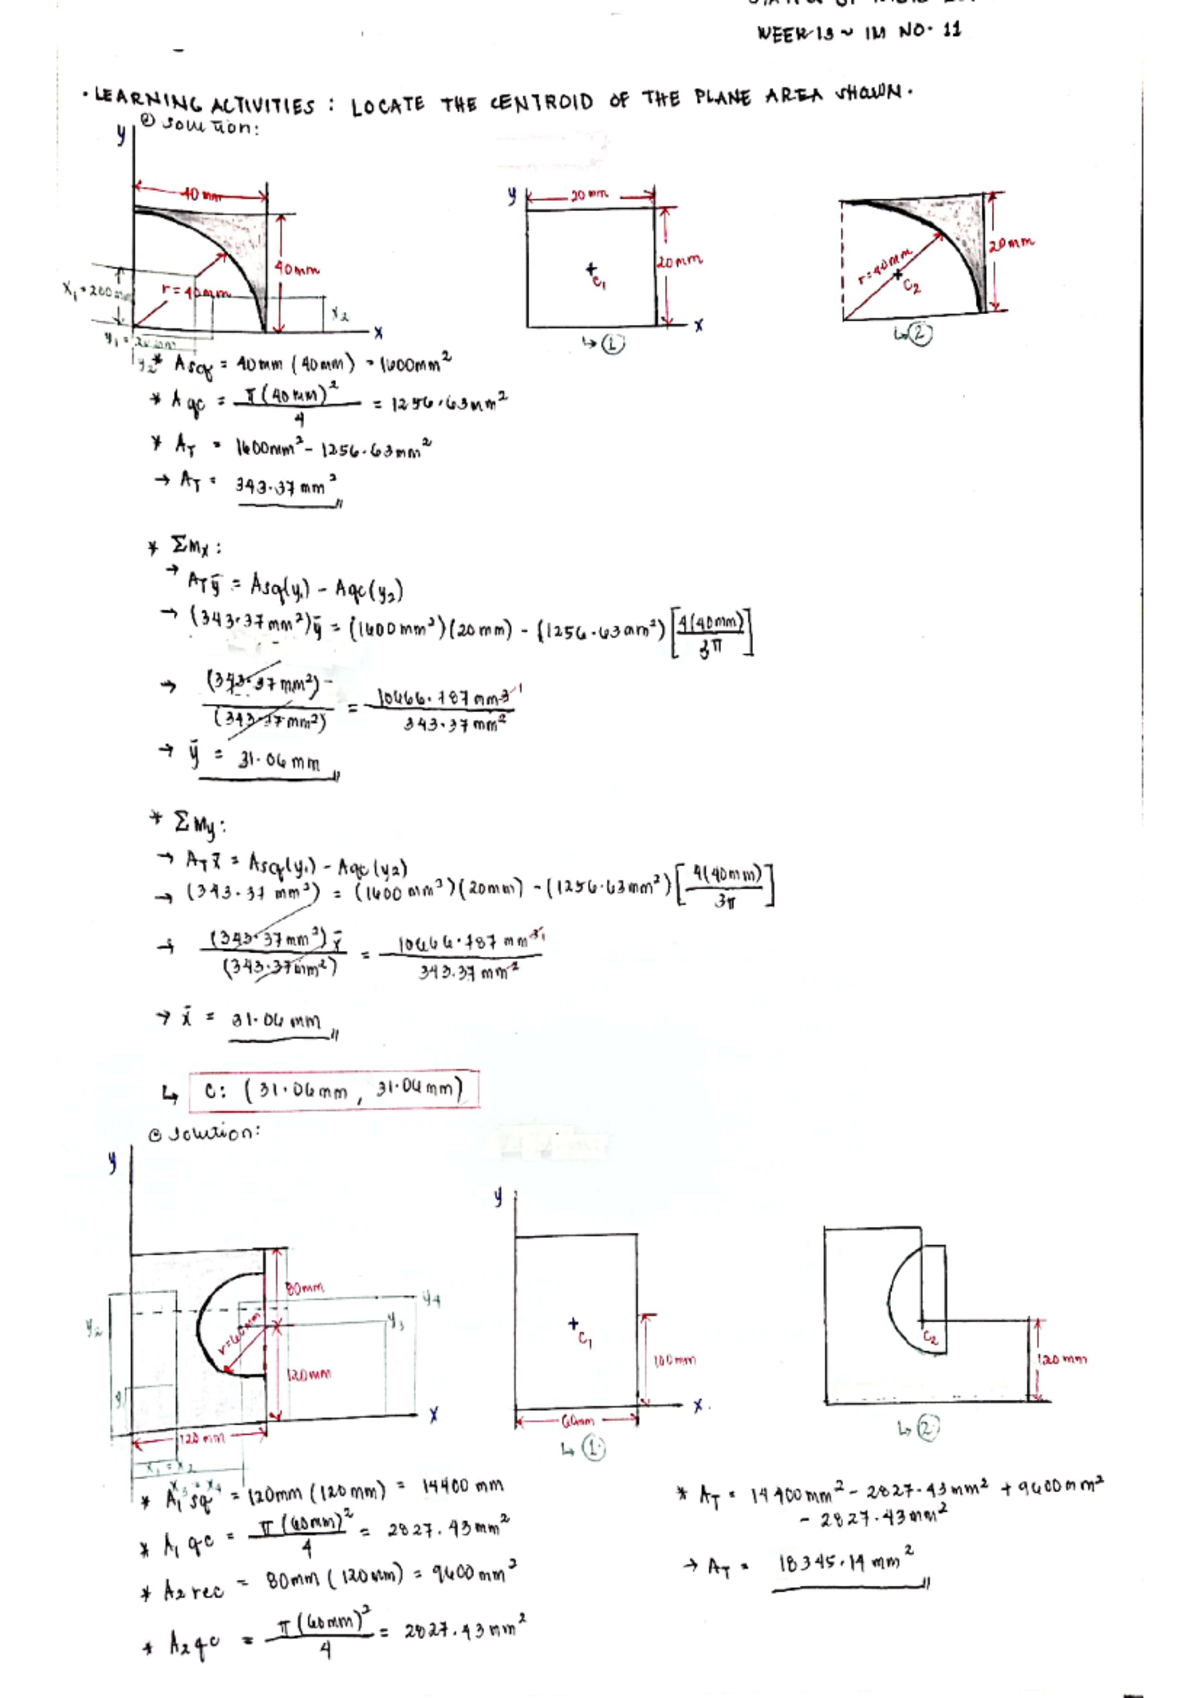 WEEK 13 ~ IM NO. 11
• LEARNING ACTIVITIES : LOCATE THE CENTROID OF THE PLANE AREA SHOWN.
solution:
y
40 mm
40mm
r = 40mm
x
x₂
y
20 mm
20 mm
C₁
x
↳ ①
r = 40mm
C₂
20mm
↳ ②
* Asq = 40mm (40mm) = 1600mm²
* Aqc = π(40mm)² / 4 = 1256.63mm²
* A_T = 1600mm² - 1256.63mm²
→ A_T = 343.37 mm²
* ΣMx :
→ A_T ȳ = Asq(y₁) - Aqc(y₂)
→ (343.37mm²)ȳ = (1600mm²)(20mm) - (1256.63mm²) [4(40mm) / 3π]
→ (343.37mm²) / (343.37mm²) = 10666.187mm³ / 343.37mm²
→ ȳ = 31.06 mm
* ΣMy:
→ A_T x̄ = Asq(y₁) - Aqc(y₂)
→ (343.37 mm²) = (1600mm²)(20mm) - (1256.63mm²) [4(40mm) / 3π]
→ (343.37mm²)x̄ / (343.37mm²) = 10666.187 mm³ / 343.37 mm²
→ x̄ = 31.06 mm
↳ C: (31.06mm, 31.06mm)
solution:
y
80mm
y₄
y₂
y₃
r=60mm
120mm
x
120 mm
x₁ = x₂
x₃ = x₄
y
C₁
100mm
x
60mm
↳ ①
C₂
120 mm
↳ ②
* A₁sq = 120mm (120mm) = 14400 mm
* A₁qc = π(60mm)² / 4 = 2827.43mm²
* A₂rec = 80mm (120mm) = 9600mm²
* A₂qc = π(60mm)² / 4 = 2827.43mm²
* A_T = 14400mm² - 2827.43mm² + 9600mm²
- 2827.43mm²
→ A_T = 18345.14 mm²